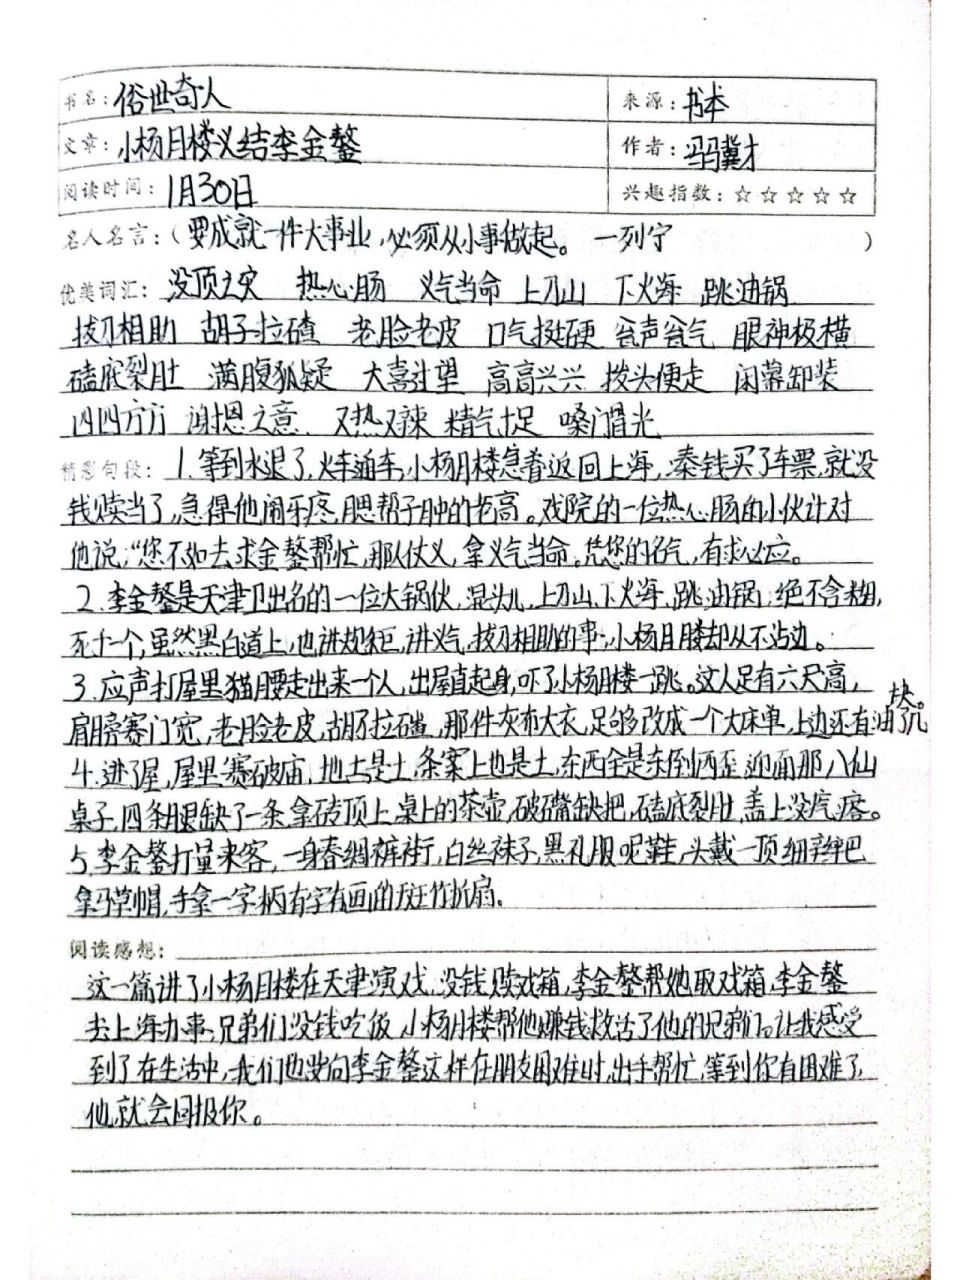 书名：俗世奇人 来源：书本
文章：小杨月楼义结李金鳌 作者：冯骥才
阅读时间：1月30日 兴趣指数：☆☆☆☆☆
名人名言：（要成就一件大事业，必须从小事做起。 —列宁 ）
优美词汇：没顶之灾 热心肠 义气当命 上刀山 下火海 跳油锅
拔刀相助 胡子拉碴 老脸老皮 口气挺硬 瓮声瓮气 眼神极横
磕底裂肚 满腹狐疑 大喜过望 高高兴兴 拨头便走 闭幕卸装
四四方方 谢恩之意 又热又辣 精气十足 嗓门冒光
精彩句段：1.等到水退了，火车通车，小杨月楼急着返回上海，凑钱买了车票，就没
钱赎当了，急得他闹牙疼，腮帮子肿的老高。戏院的一位热心肠的小伙计对
他说，“您不如去求金鳌帮忙，那人仗义，拿义气当命。凭您的名气，有求必应。
2.李金鳌是天津卫出名的一位大锅伙，混头儿，上刀山、下火海、跳油锅，绝不含糊，
死十个，虽然黑白道上，也讲规矩，讲义气，拔刀相助的事，小杨月楼却从不沾边。
3.应声打屋里猫腰走出来一个人，出屋直起身，吓了小杨月楼一跳。这人足有六尺高，
肩膀赛门宽，老脸老皮，胡子拉碴，那件灰布大衣，足够改成一个大床单，上边还有油
4.进了屋，屋里赛破庙，地上是土，条案上也是土，东西全是东倒西歪，迎面那八仙
桌子，四条腿缺了一条，拿砖顶上，桌上的茶壶，破嘴缺把，磕底裂肚，盖上没疙瘩。
5.李金鳌打量来客，一身春绸裤褂，白丝袜子，黑礼服呢鞋，头戴一顶细辫巴
拿马草帽，手拿一字柄有字有画的斑竹折扇。
阅读感想：
这一篇讲了小杨月楼在天津演戏，没钱赎戏箱，李金鳌帮她取戏箱，李金鳌
去上海办事，兄弟们没钱吃饭，小杨月楼帮他赚钱救活了他的兄弟们。让我感受
到了在生活中，我们也要向李金鳌这样在朋友困难时，出手帮忙，等到你有困难了，
他就会回报你。